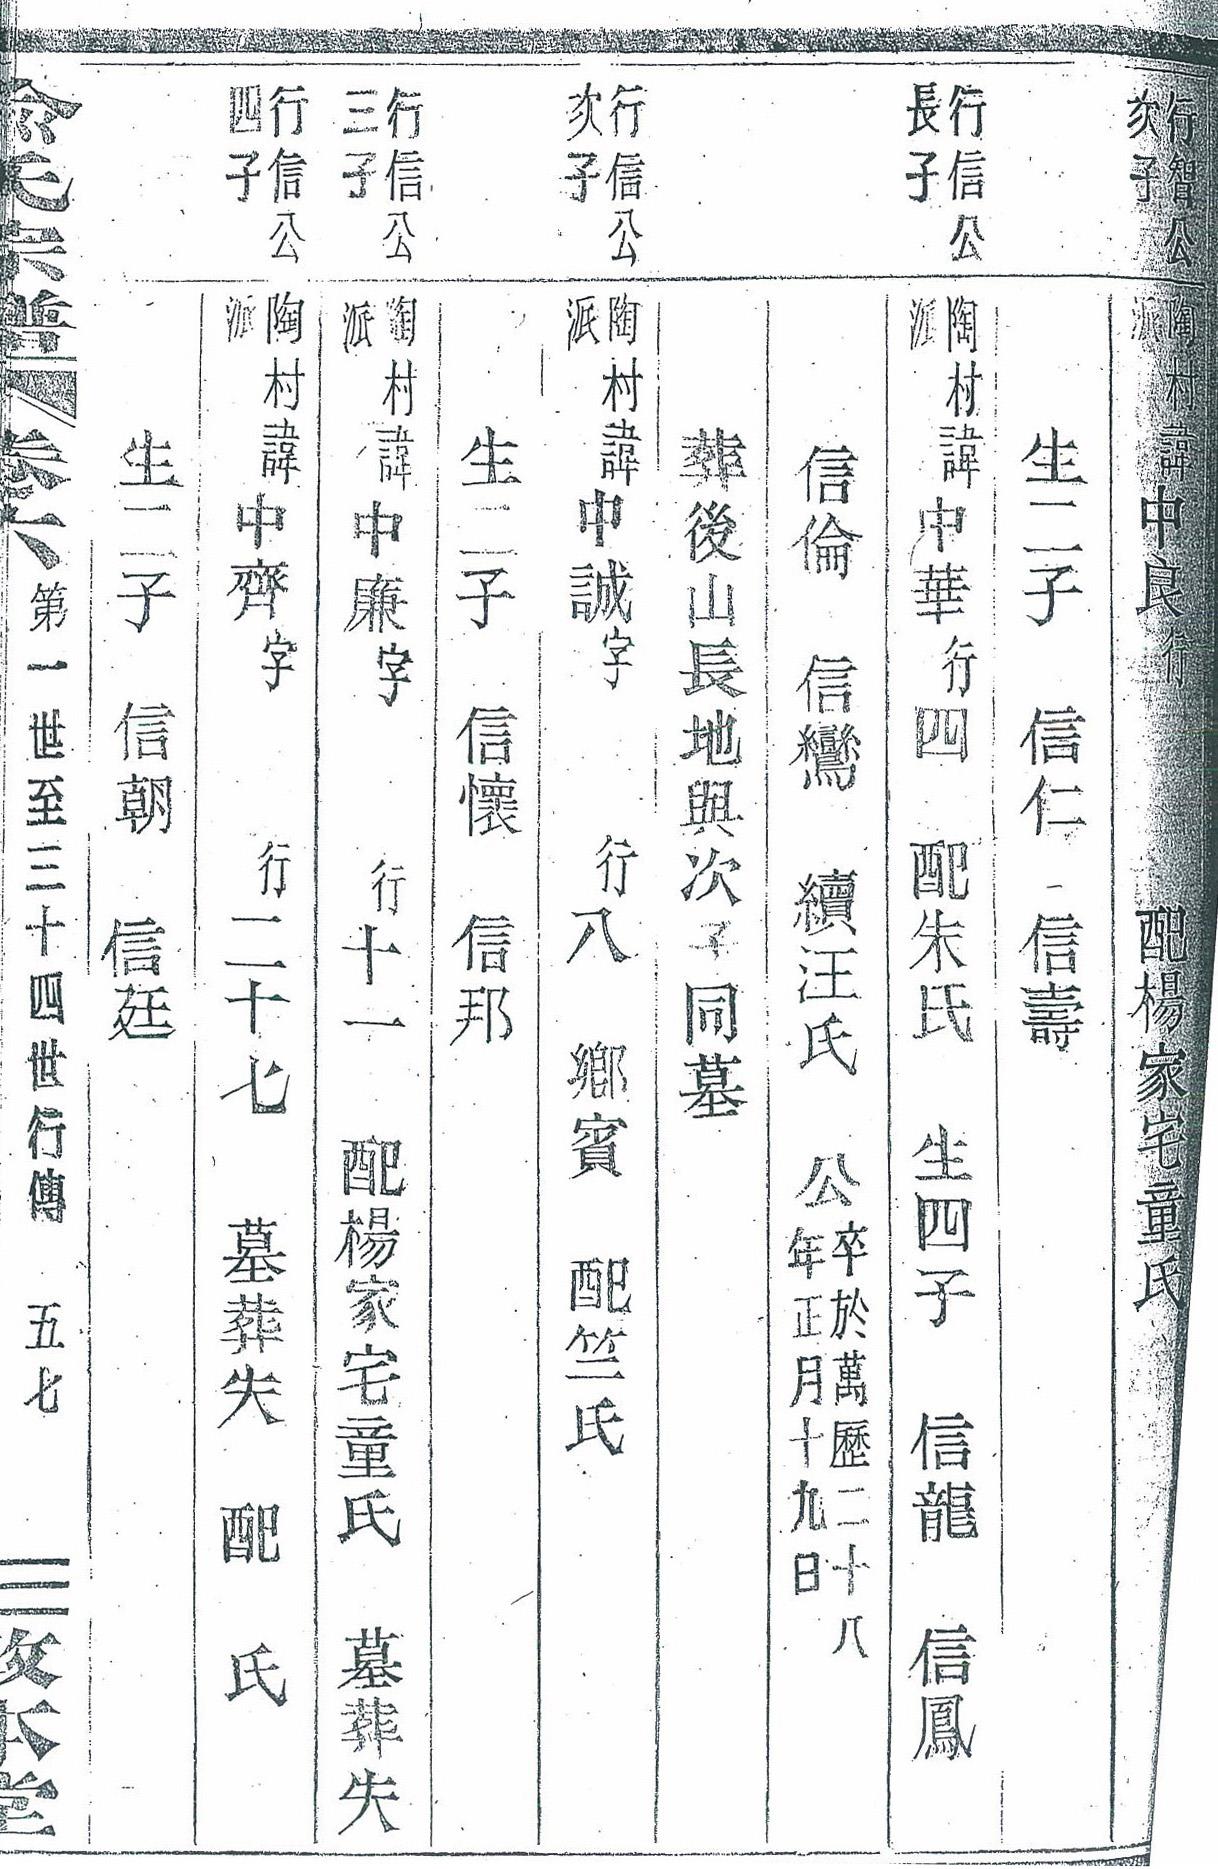 行智公
次子
陶村
派
諱中良行 配楊家宅童氏
生二子 信仁 信壽
行信公
長子
陶村
派
諱中華行四 配朱氏 生四子 信龍 信鳳
信倫 信鸞 續汪氏 公
卒於萬歷二十八
年正月十九日
葬後山長地與次子同墓
行信公
次子
陶村
派
諱中誠字 行八 鄉賓 配竺氏
生二子 信懷 信邦
行信公
三子
陶村
派
諱中廉字 行十一 配楊家宅童氏 墓葬失
行信公
四子
陶村
派
諱中齊字 行二十七 墓葬失 配 氏
生二子 信朝 信廷
俞氏宗譜 卷六 第一世至三十四世行傳 五七 敦本堂